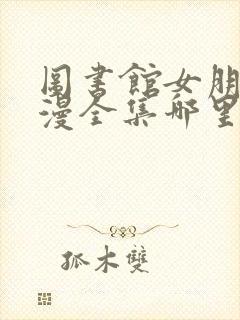 圖書館女朋
漫全集哪里
孤木雙